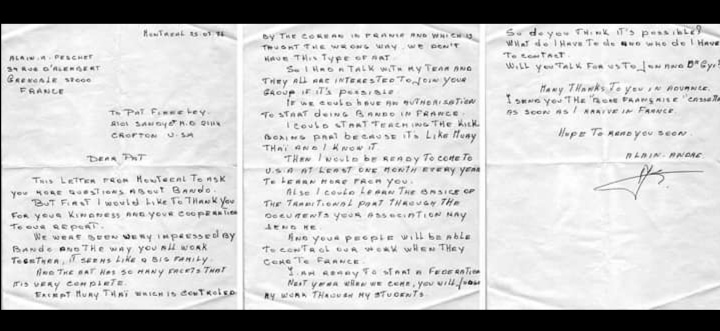 MONTREAL 25.03.
ALAIN.A. PESCHET
34 RUE D'ALEMBERT
GRENOBLE 38000
FRANCE
TO PAT
CROFTON U.S.A
DEAR PAT
THIS LETTER FROM MONTREAL TO ASK
YOU MORE QUESTIONS ABOUT BANDO.
BUT FIRST I WOULD LIKE TO THANK YOU
FOR YOUR KINDNESS AND YOUR COOPERATION
TO OUR REPORT.
WE WERE BEEN VERY IMPRESSED BY
BANDO AND THE WAY, YOU ALL WORK
TOGETHER, IT SEEMS LIKE A BIG FAMILY.
AND THE ART HAS SO MANY FACETS THAT
IT IS VERY COMPLETE.
EXCEPT MUAY THAÏ WHICH IS CONTROLED
BY THE COREAN IN FRANCE AND WHICH IS
TAUGHT THE WRONG WAY. WE DON'T
HAVE THIS TYPE OF ART.
SO I HAD A TALK WITH MY TEAM AND
THEY ALL ARE INTERESTED TO JOIN YOUR
GROUP IF IT'S POSSIBLE
IF WE COULD HAVE AN AUTHORISATION
TO START DOING BANDO IN FRANCE.
I COULD START TEACHING THE KICK
BOXING PART BECAUSE IT'S LIKE MUAY
THAÏ AND I KNOW IT.
THEN I WOULD BE READY TO COME TO
U.S.A AT LEAST ONE MONTH EVERY YEAR
TO LEARN MORE FROM YOU.
ALSO I COULD LEARN THE BASICS OF
THE TRADITIONAL PART THROUGH THE
DOCUMENTS YOUR ASSOCIATION MAY
SEND ME.
AND YOUR PEOPLE WILL BE ABLE
TO CONTROL OUR WORK WHEN THEY
COME TO FRANCE.
I AM READY TO START A FEDERATION
NEXT YEAR WHEN WE COME, YOU WILL JUDGE
MY WORK THROUGH MY STUDENTS.
SO DO YOU THINK IT'S POSSIBLE?
WHAT DO I HAVE TO DO AND WHO DO I HAVE
TO CONTACT.
WILL YOU TALK FOR US TO JON AND DR GYI?
MANY THANKS TO YOU IN ADVANCE.
I SEND YOU THE "BOXE FRANÇAISE" CASSETTE
AS SOON AS I ARRIVE IN FRANCE.
HOPE TO READ YOU SOON.
ALAIN-ANDRE